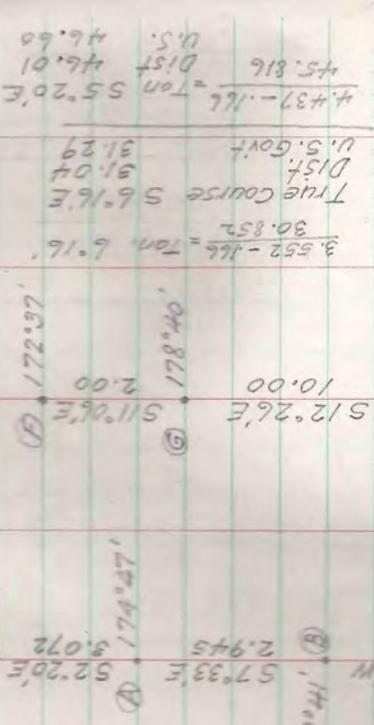 S2°20'E S7°33'E W
3.072 2.945
Ⓐ 174°47'
Ⓑ
S11°06'E S12°26'E
2.00 10.00
Ⓕ 172°37'
Ⓖ 178°40'
3.552 - .166
30.852 = Tan. 6°16'
True Course S 6°16'E
Dist. 31.04
U.S. Gov't 31.29
4.437 - .166
45.816 = Tan S 5°20'E
Dist 46.01
U.S. 46.60